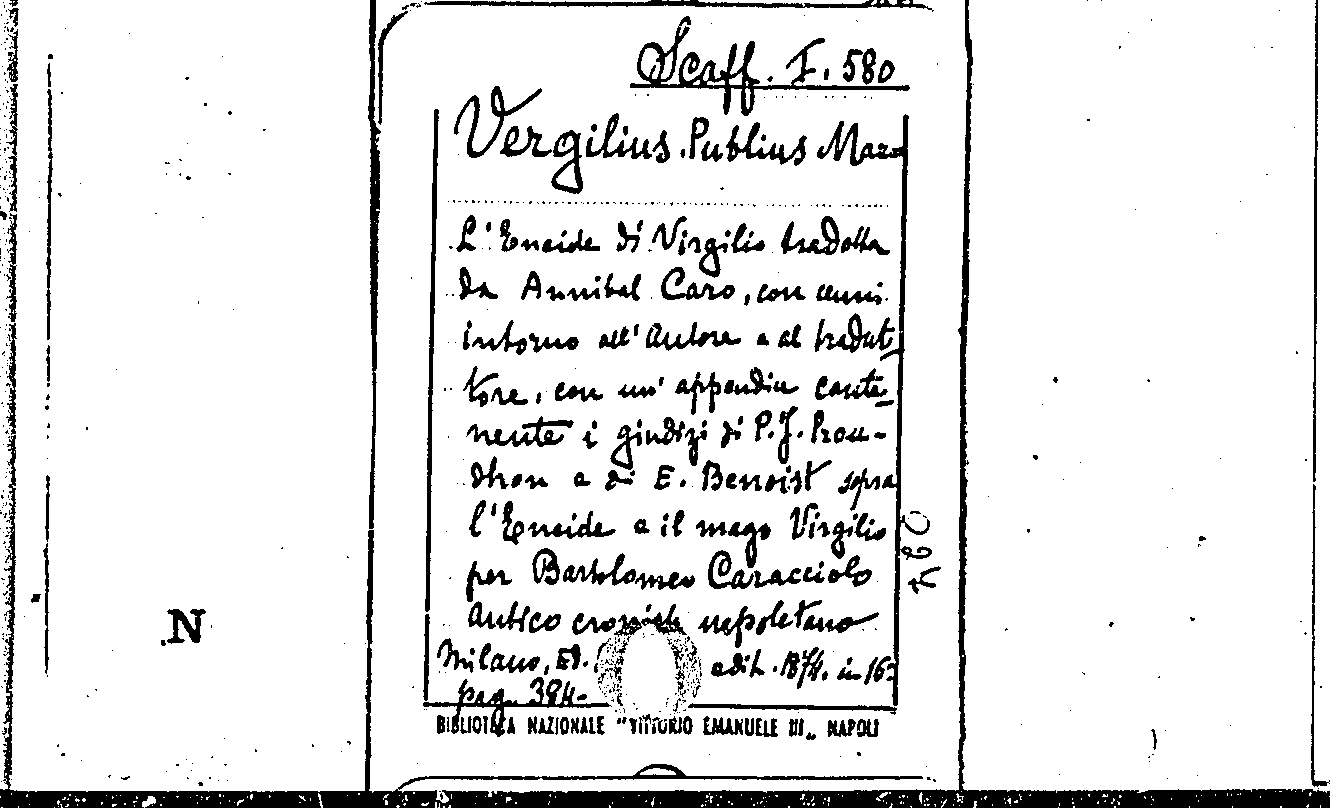 Scaff. F. 580
Vergilius Publius Maro
L'Eneide di Virgilio tradotta
da Annibal Caro, con cenni
intorno all'Autore e al tradut
tore, con un'appendice conte
nente i giudizi di P. J. Prou-
dhon e di E. Benoist sopra
l'Eneide e il mago Virgilio
per Bartolomeo Caracciolo
antico cronista napoletano
Milano, Ed. edit. 1874. in 16º
pag. 384-
BIBLIOTECA NAZIONALE "VITTORIO EMANUELE III„ NAPOLI
N